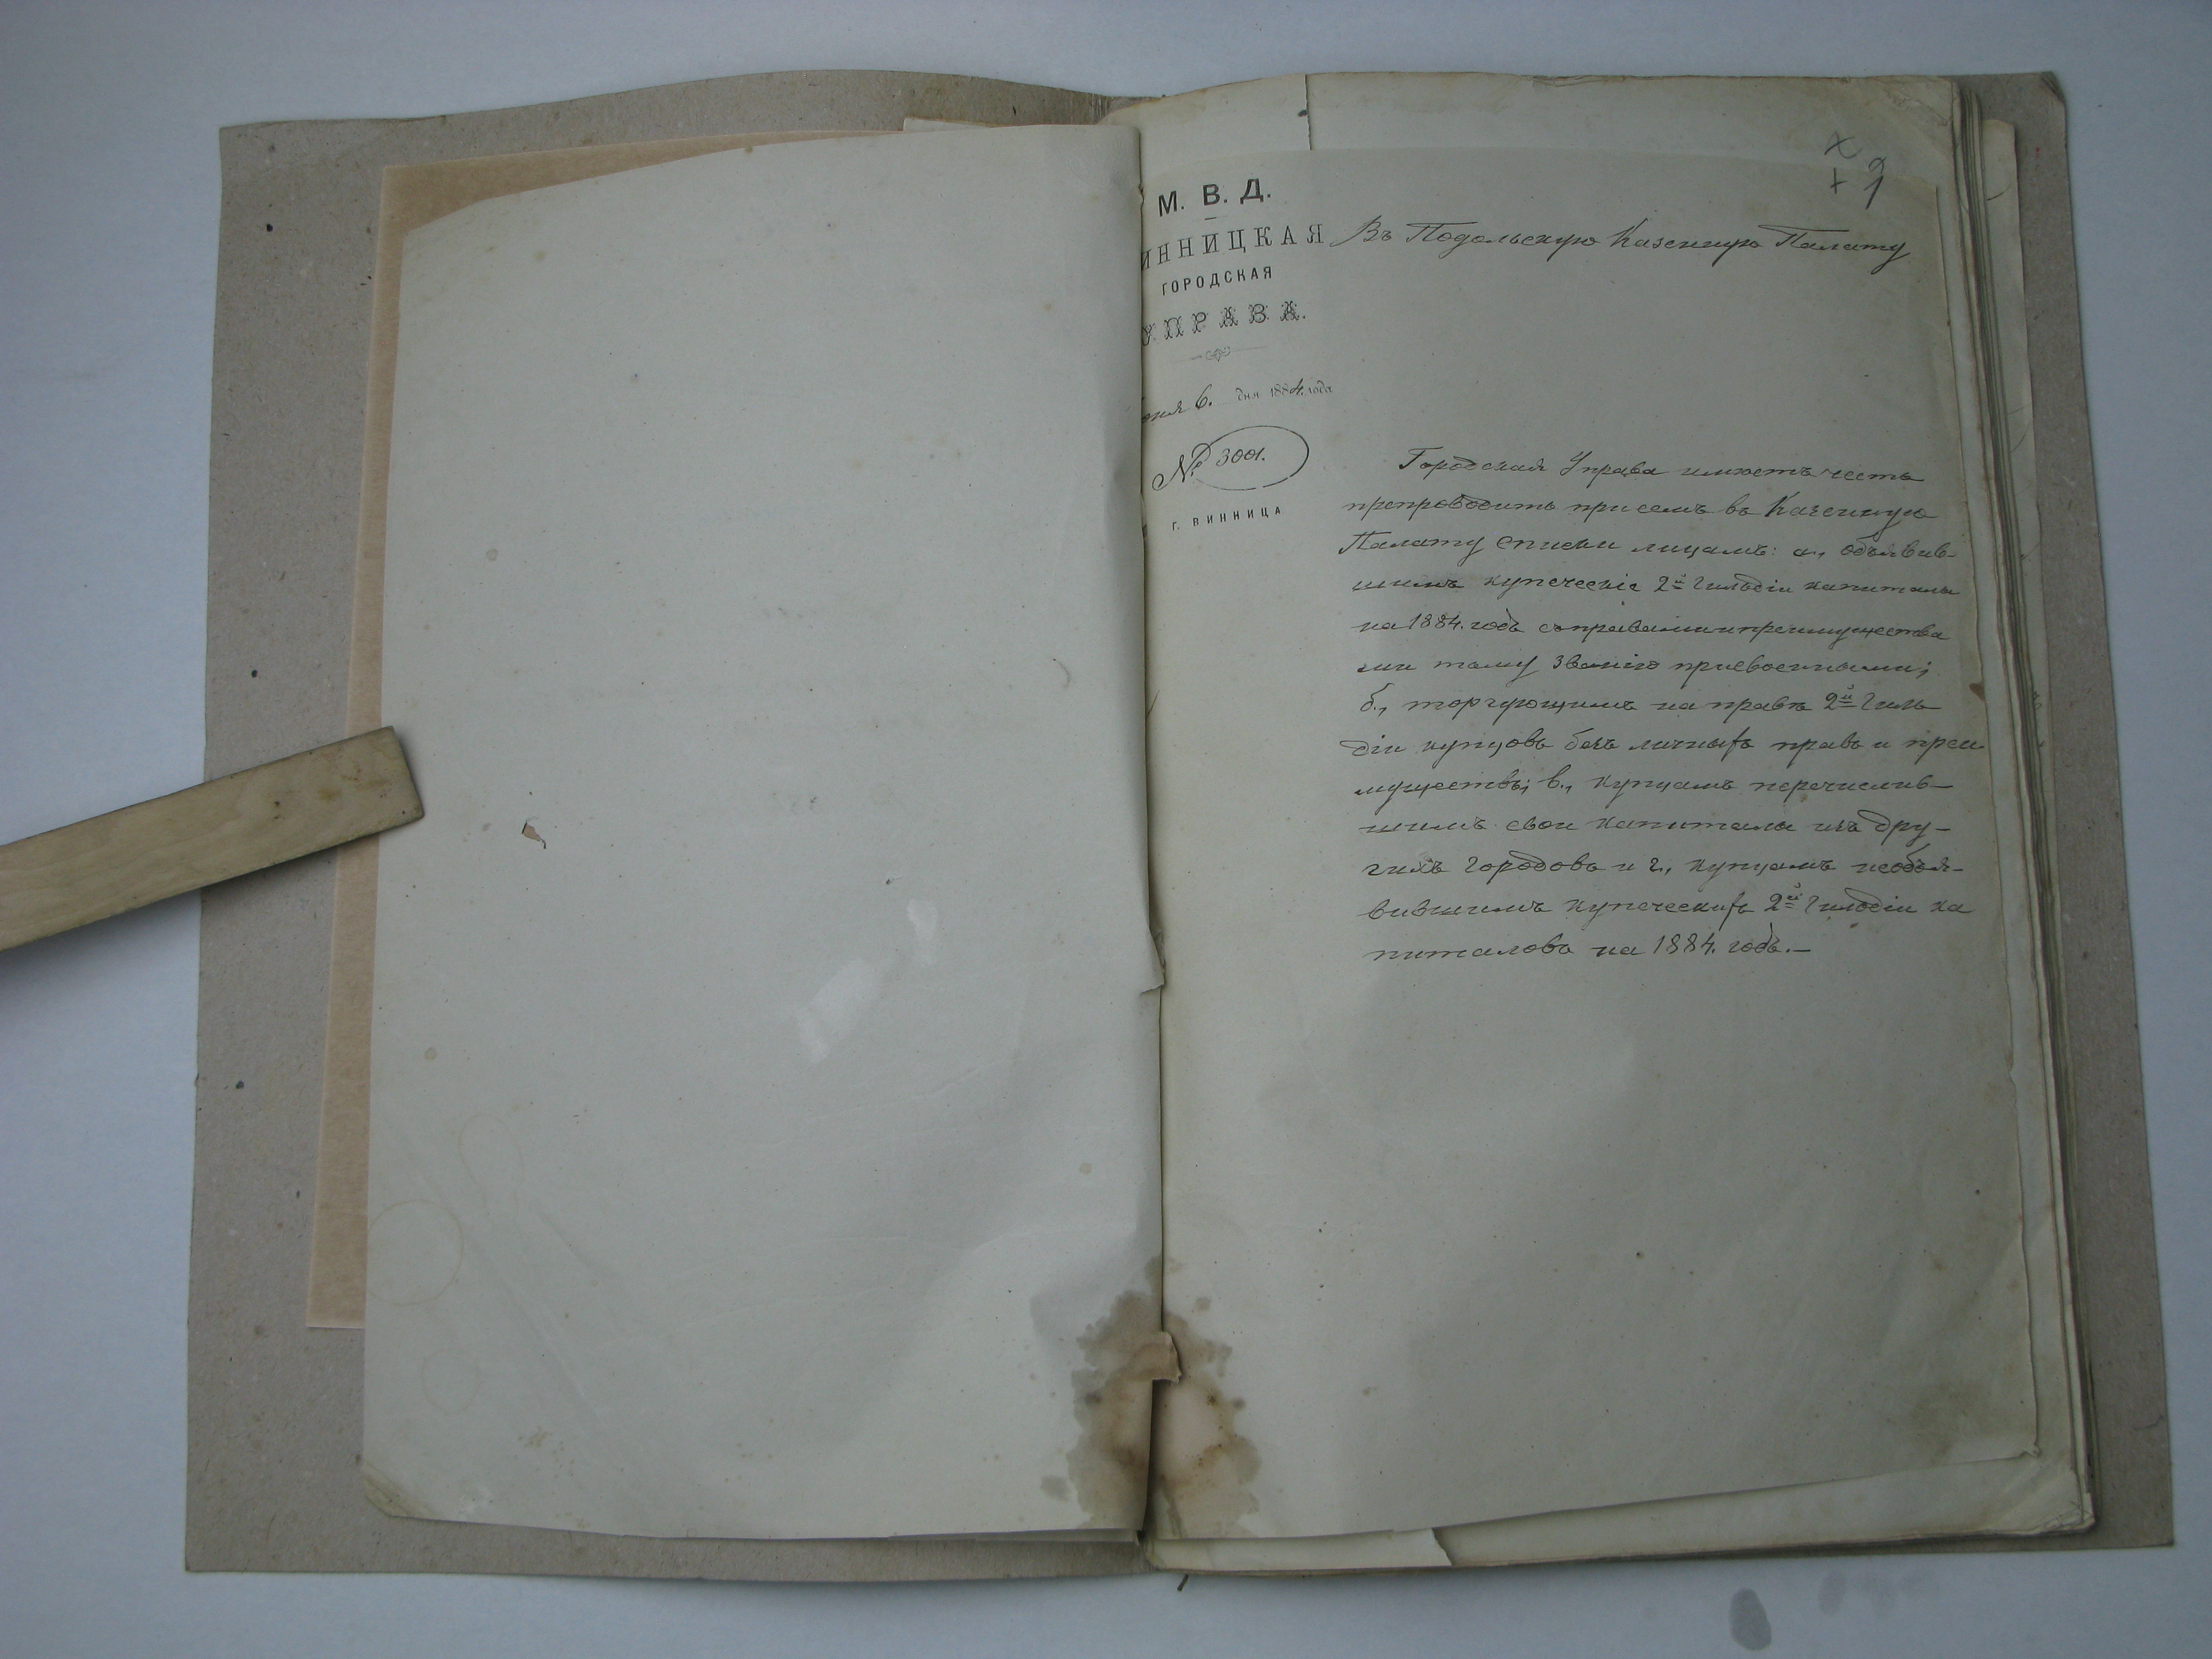 М. В. Д.
ИННИЦКАЯ
ГОРОДСКАЯ
УПРАВА.
6. дня 1884. года
№ 3001.
Г. ВИННИЦА
Въ Подольскую Казенную Палату
Городская Управа имѣетъ честь
препроводить при семъ въ Казенную
Палату списки лицамъ: а., объявив-
шимъ купеческіе 2й Гильдіи капиталы
на 1884. годъ съ правами и преимущества
ми тому званію присвоенными;
б., торгующимъ на правѣ 2й Гиль
діи купцовъ безъ личныхъ правъ и преи-
муществъ; в., купцамъ перечислив-
шимъ свои капиталы изъ дру-
гихъ городовъ и г., купцамъ необъя-
вившимъ купеческихъ 2й Гильдіи ка
питаловъ на 1884. годъ.—